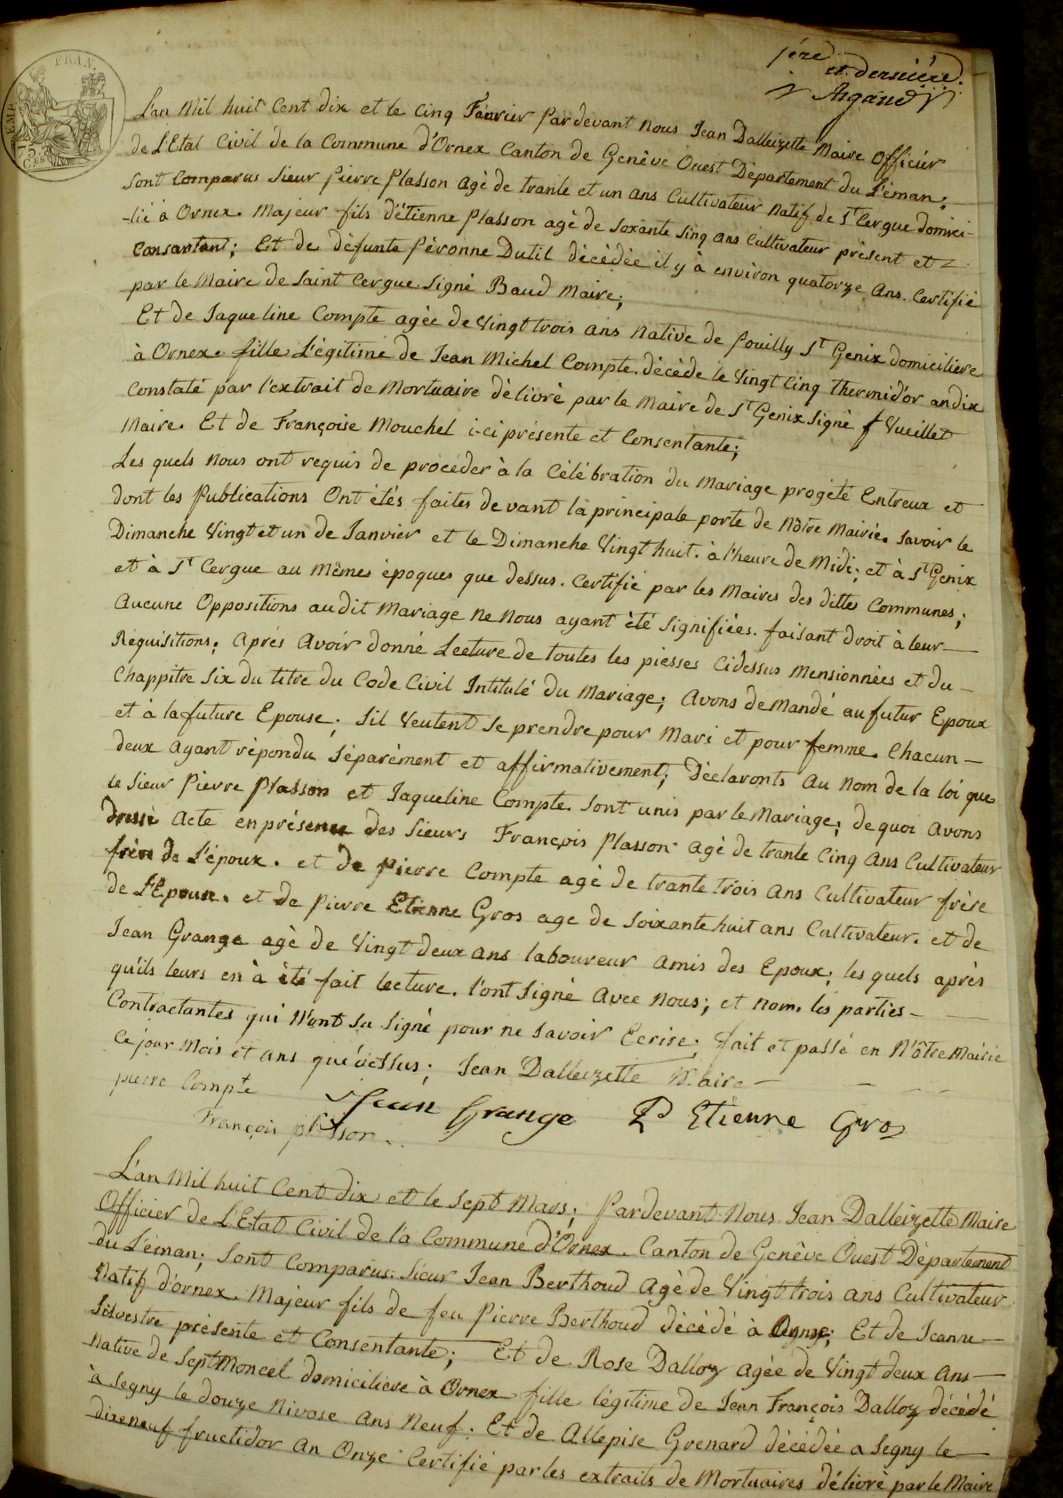 1ère
et dernière.
Argand
EMP. FRAN.
L'an Mil huit Cent dix et le Cinq Fawrier Pardevant Nous Jean Dalleizette Maire Officier
de L'Etat Civil de la Commune d'Ornex Canton de Genève Ouest Département du L'éman;
Sont Comparus Sieur Pierre Plasson Agè de trante et un ans Cultivateur Natif de St Cergue domici-
-lié à Ornex. Majeur fils d'étienne Plasson agè de Soxante Sinq Ans Cultivateur présent et
Consantant; Et de défunte Péronne Dutil décédée il y à environ quatorze Ans. Certifié
par le Maire de Saint Cergue Signé Baud Maire;
Et de Jaqueline Compte agèe de Vingt trois ans Native de Pouilly St Genix domicilière
à Ornex. fille L'égitime de Jean Michel Compte. décède le Vingt Cinq Thermidor an dix
Constaté par l'extrait de Mortuaire délivré par le Maire de St Genix Signé f Vueillet
Maire. Et de Françoise Mouchel i-ci présente et Consentante;
Les quels Nous ont requis de procéder à la Célébration du Mariage progété Entreux et
dont les Publications Ont étés faites devant la principale porte de Nôtre Mairie. Savoir le
Dimanche Vingt et un de Janvier et le Dimanche Vingt huit. à l'heure de Midi; et à St Genix
et à St Cergue au Mêmes époques que dessus. Certifié par les Maires des dittes Communes;
Aucune Oppositions audit Mariage Ne Nous ayant été Signifiées. faisant droit à leur
Réquisitions; Après Avoir donné Lecture de toutes les piesses Cidessus Mensionnées et du
Chappitre Six du titre du Code Civil Intitulé du Mariage; Avons deMandé au futur Epoux
et à la future Epouse; Sil Veutent Se prendre pour Mari et pour femme. Chacun
deux Ayant répondu Séparément et affirmativement; Déclaronts Au Nom de la loi que
le Sieur Pierre Plasson et Jaqueline Compte. Sont unis par le Mariage; de quoi Avons
dressé Acte en présence des Sieurs François Plasson Agè de trante Cinq Ans Cultivateur
frère de L'époux. et de Pierre Compte agè de trante trois ans Cultivateur frère
de L'Epouse. et de Pierre Etienne Gros age de Soixante huit ans Cultivateur. et de
Jean Grange agè de Vingt deux ans laboureur amis des Epoux; les quels après
qu'ils leurs en à été fait lecture. l'ont Signé Avec Nous; et Nom. les parties
Contractantes qui N'ont Su Signé pour ne Savoir Ecrire; fait et passé en N'ôtre Mairie
Ce jour Mois et ans que dessus; Jean Dalleizette Maire
pierre Compte Jean Grange P Etienne Gros
François plasson
L'an Mil huit Cent dix et le Sept Mars; Pardevant Nous Jean Dalleizette Maire
Officier de L'Etat Civil de la Commune d'Ornex. Canton de Genève Ouest Département
du L'éman; Sont Comparus. Sieur Jean Berthoud Agè de Vingt trois ans Cultivateur
Natif d'ornex. Majeur fils de feu Pierre Berthoud décédé à Ornex; Et de Jeanne
Silvestre présente et Consentante; Et de Rose Dalloz Agée de Vingt deux Ans
Native de Sept Moncel domicilière à Ornex fille légitime de Jean François Dalloz décédé
à Segny le douze Nivose ans Neuf. Et de Allepise Grenard décédée a Segny le
dixeneuf fructidor An Onze Certifié par les extraits de Mortuaires délivré par le Maire